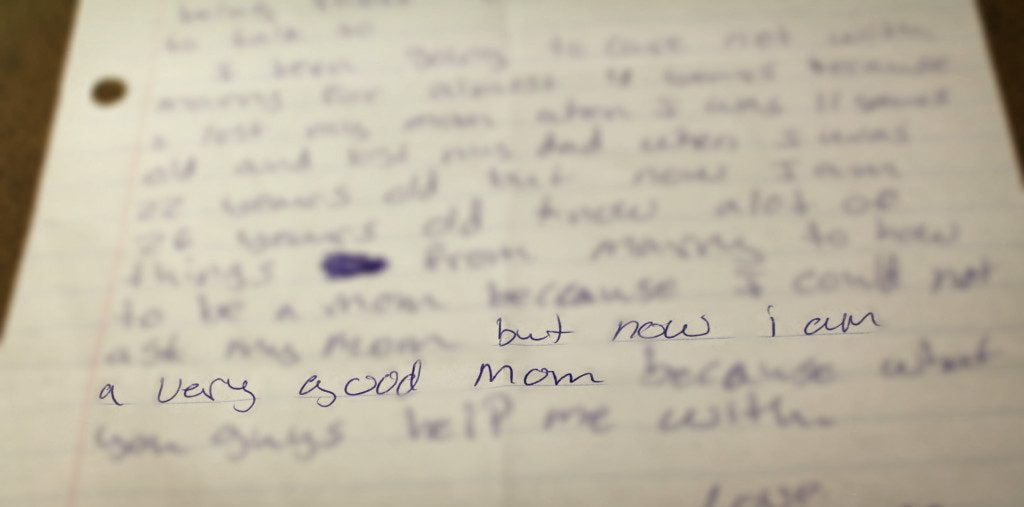 to talk to
I been going to care not with
moving for almost 4 years because
I lost my mom when I was 11 years
old and lost my dad when I was
22 years old but now I am
26 years old know alot of
things from moving to how
to be a mom because I could not
ask my mom but now i am
a very good mom because what
you guys help me with.
Love